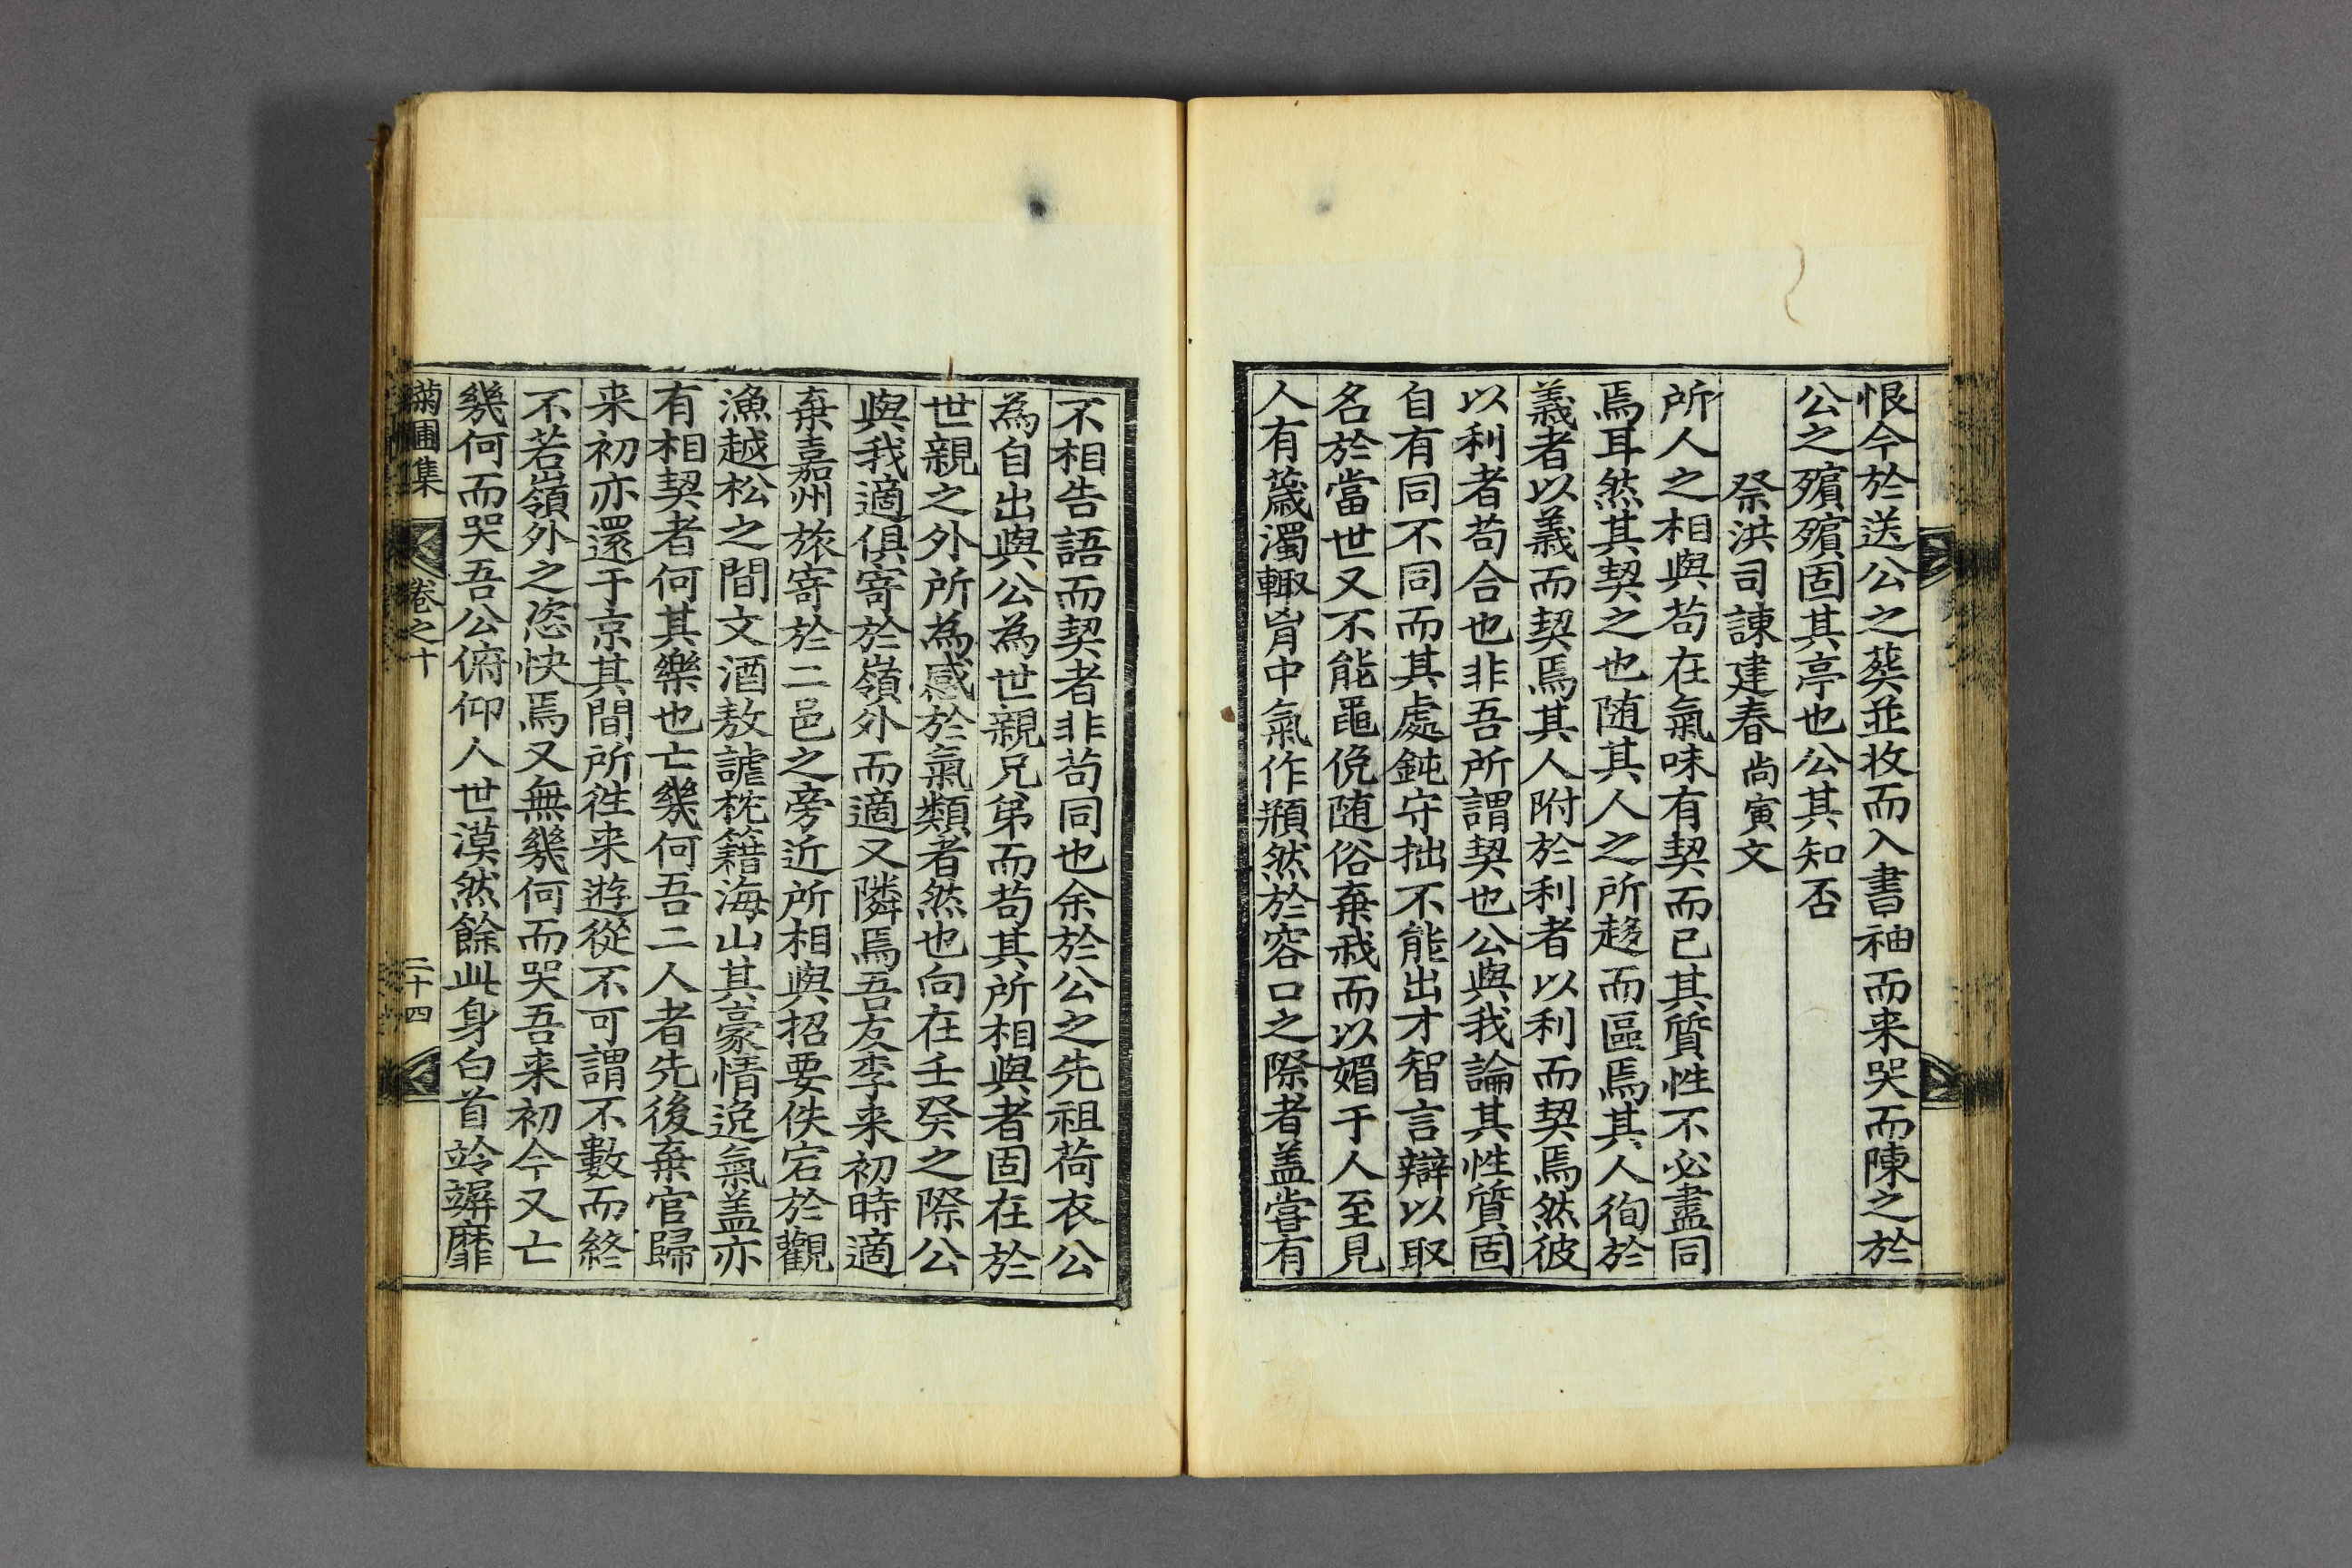 恨今於送公之葬並收而入書袖而来哭而陳之於
公之殯殯固其亭也公其知否
祭洪司諫建春尙寅文
所人之相與苟在氣味有契而已其質性不必盡同
焉耳然其契之也随其人之所趍而區焉其人徇於
義者以義而契焉其人附於利者以利而契焉然彼
以利者苟合也非吾所謂契也公與我論其性質固
自有同不同而其處鈍守拙不能出才智言辯以取
名於當世又不能黽俛随俗棄我而以媚于人至見
人有薉濁輙胷中氣作頩然於容口之際者盖嘗有
不相告語而契者非苟同也余於公之先祖荷衣公
為自出與公為世親兄弟而苟其所相與者固在於
世親之外所為感於氣類者然也向在壬癸之際公
與我適俱寄於嶺外而適又隣焉吾友李来初時適
棄嘉州旅寄於二邑之旁近所相與招要佚宕於觀
漁越松之間文酒敖謔枕籍海山其豪情逸氣盖亦
有相契者何其樂也亡幾何吾二人者先後棄官歸
来初亦還于京其間所徃来遊從不可謂不數而終
不若嶺外之恣快焉又無幾何而哭吾来初今又亡
幾何而哭吾公俯仰人世漠然餘此身白首竛竮靡
菊圃集 卷之十 二十四